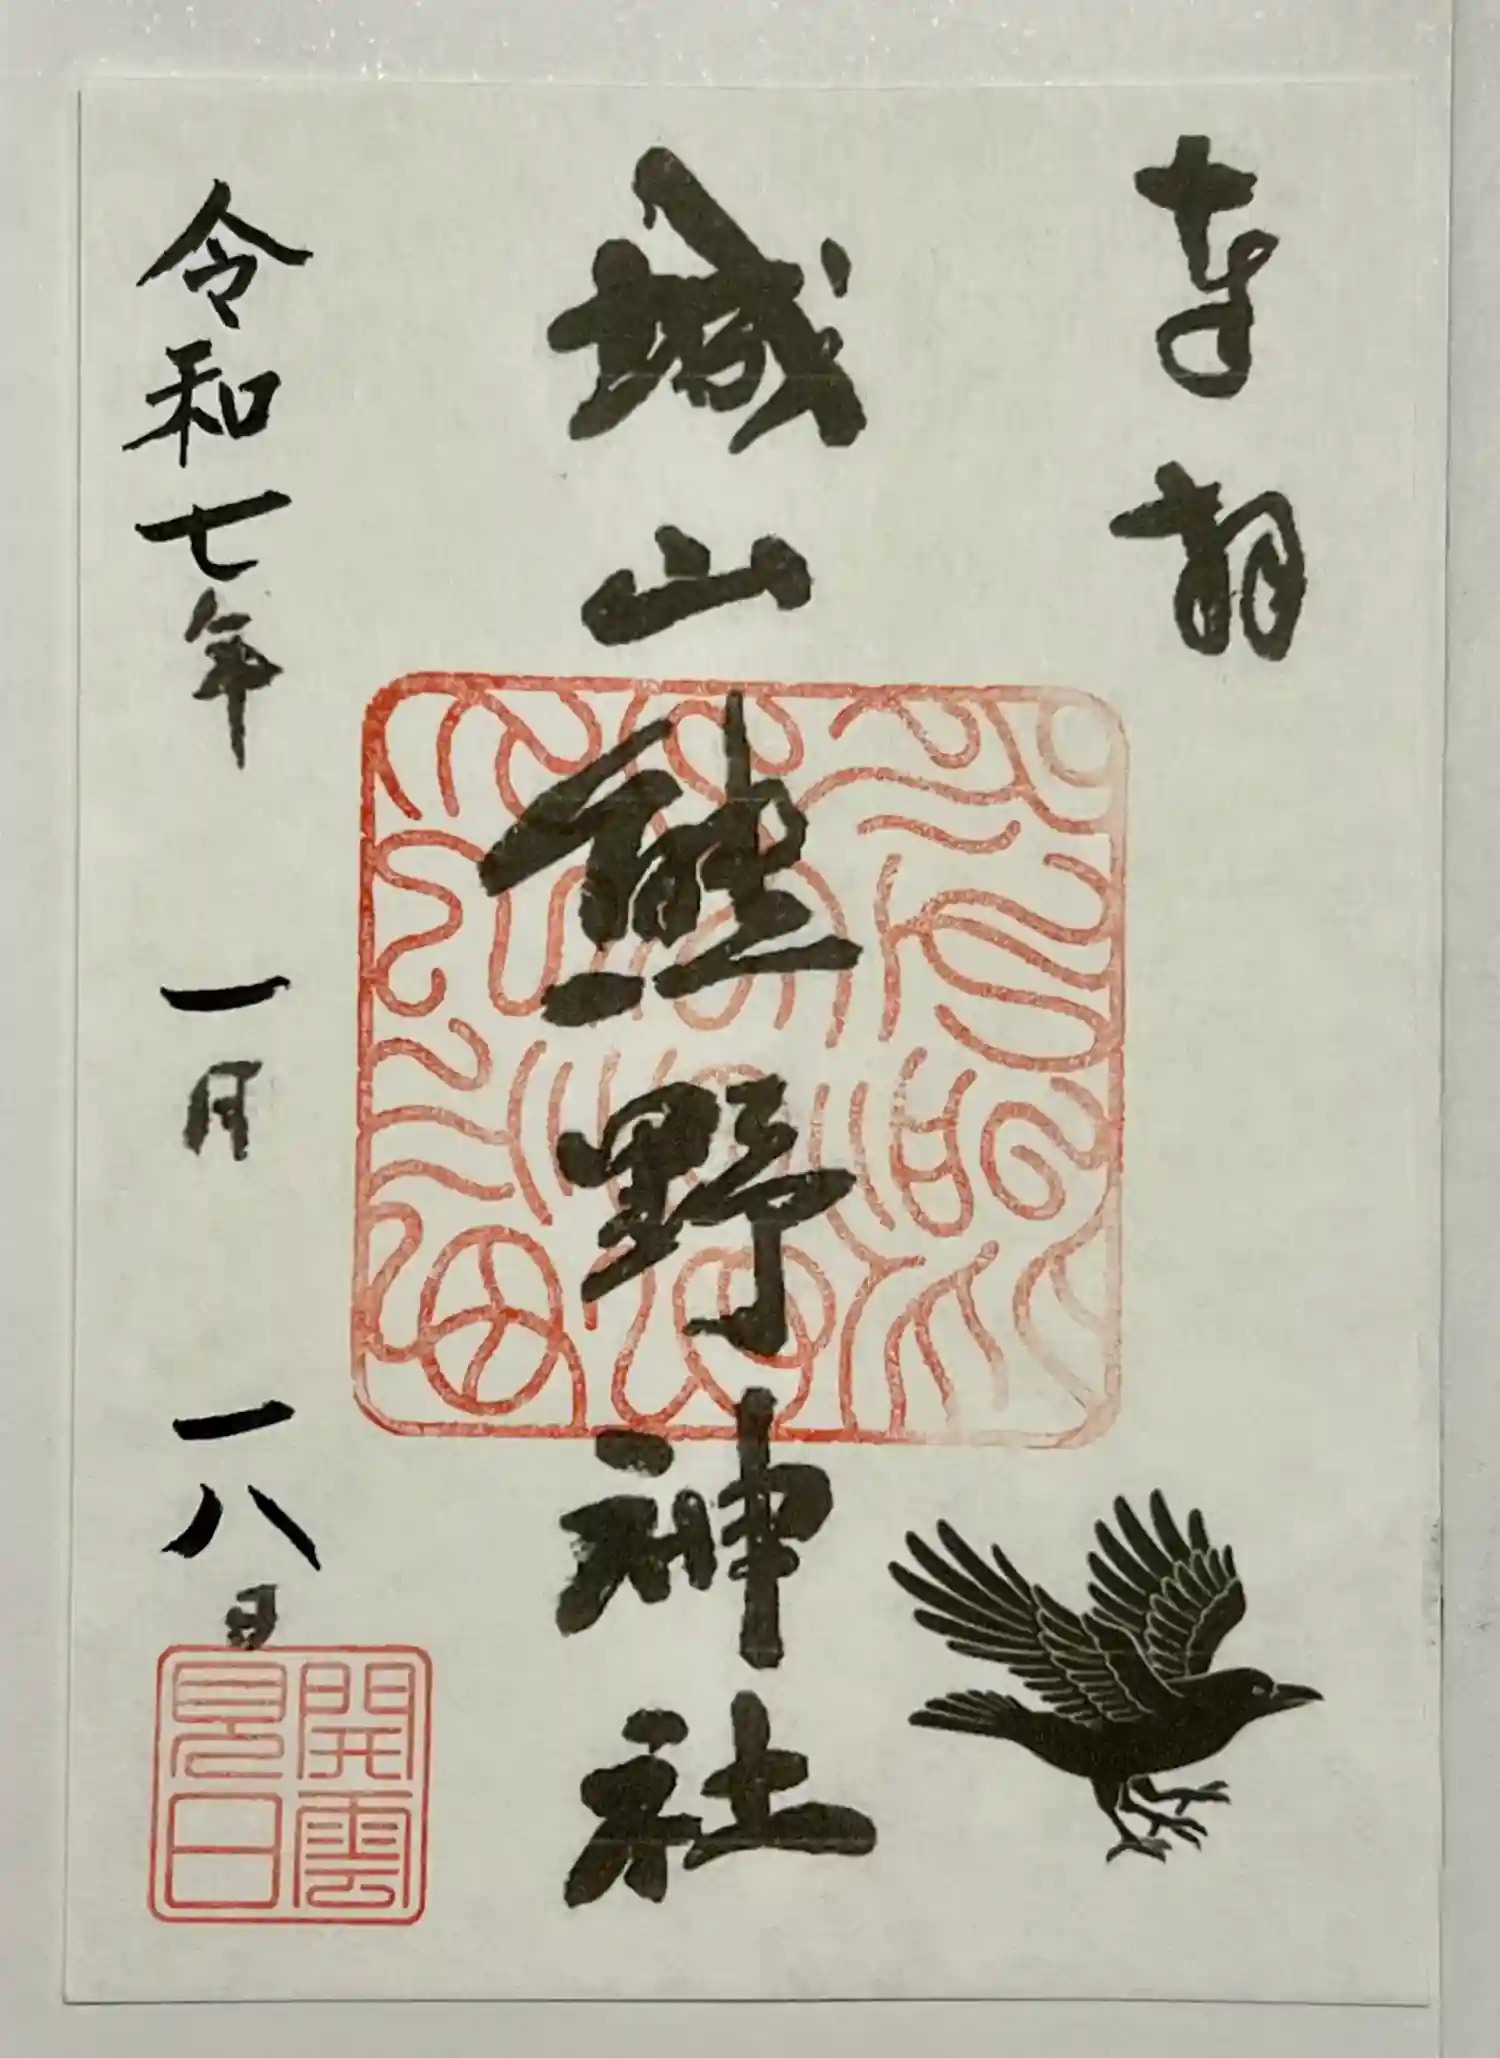 奉拝
城山熊野神社
令和七年一月一八日
開雲見日